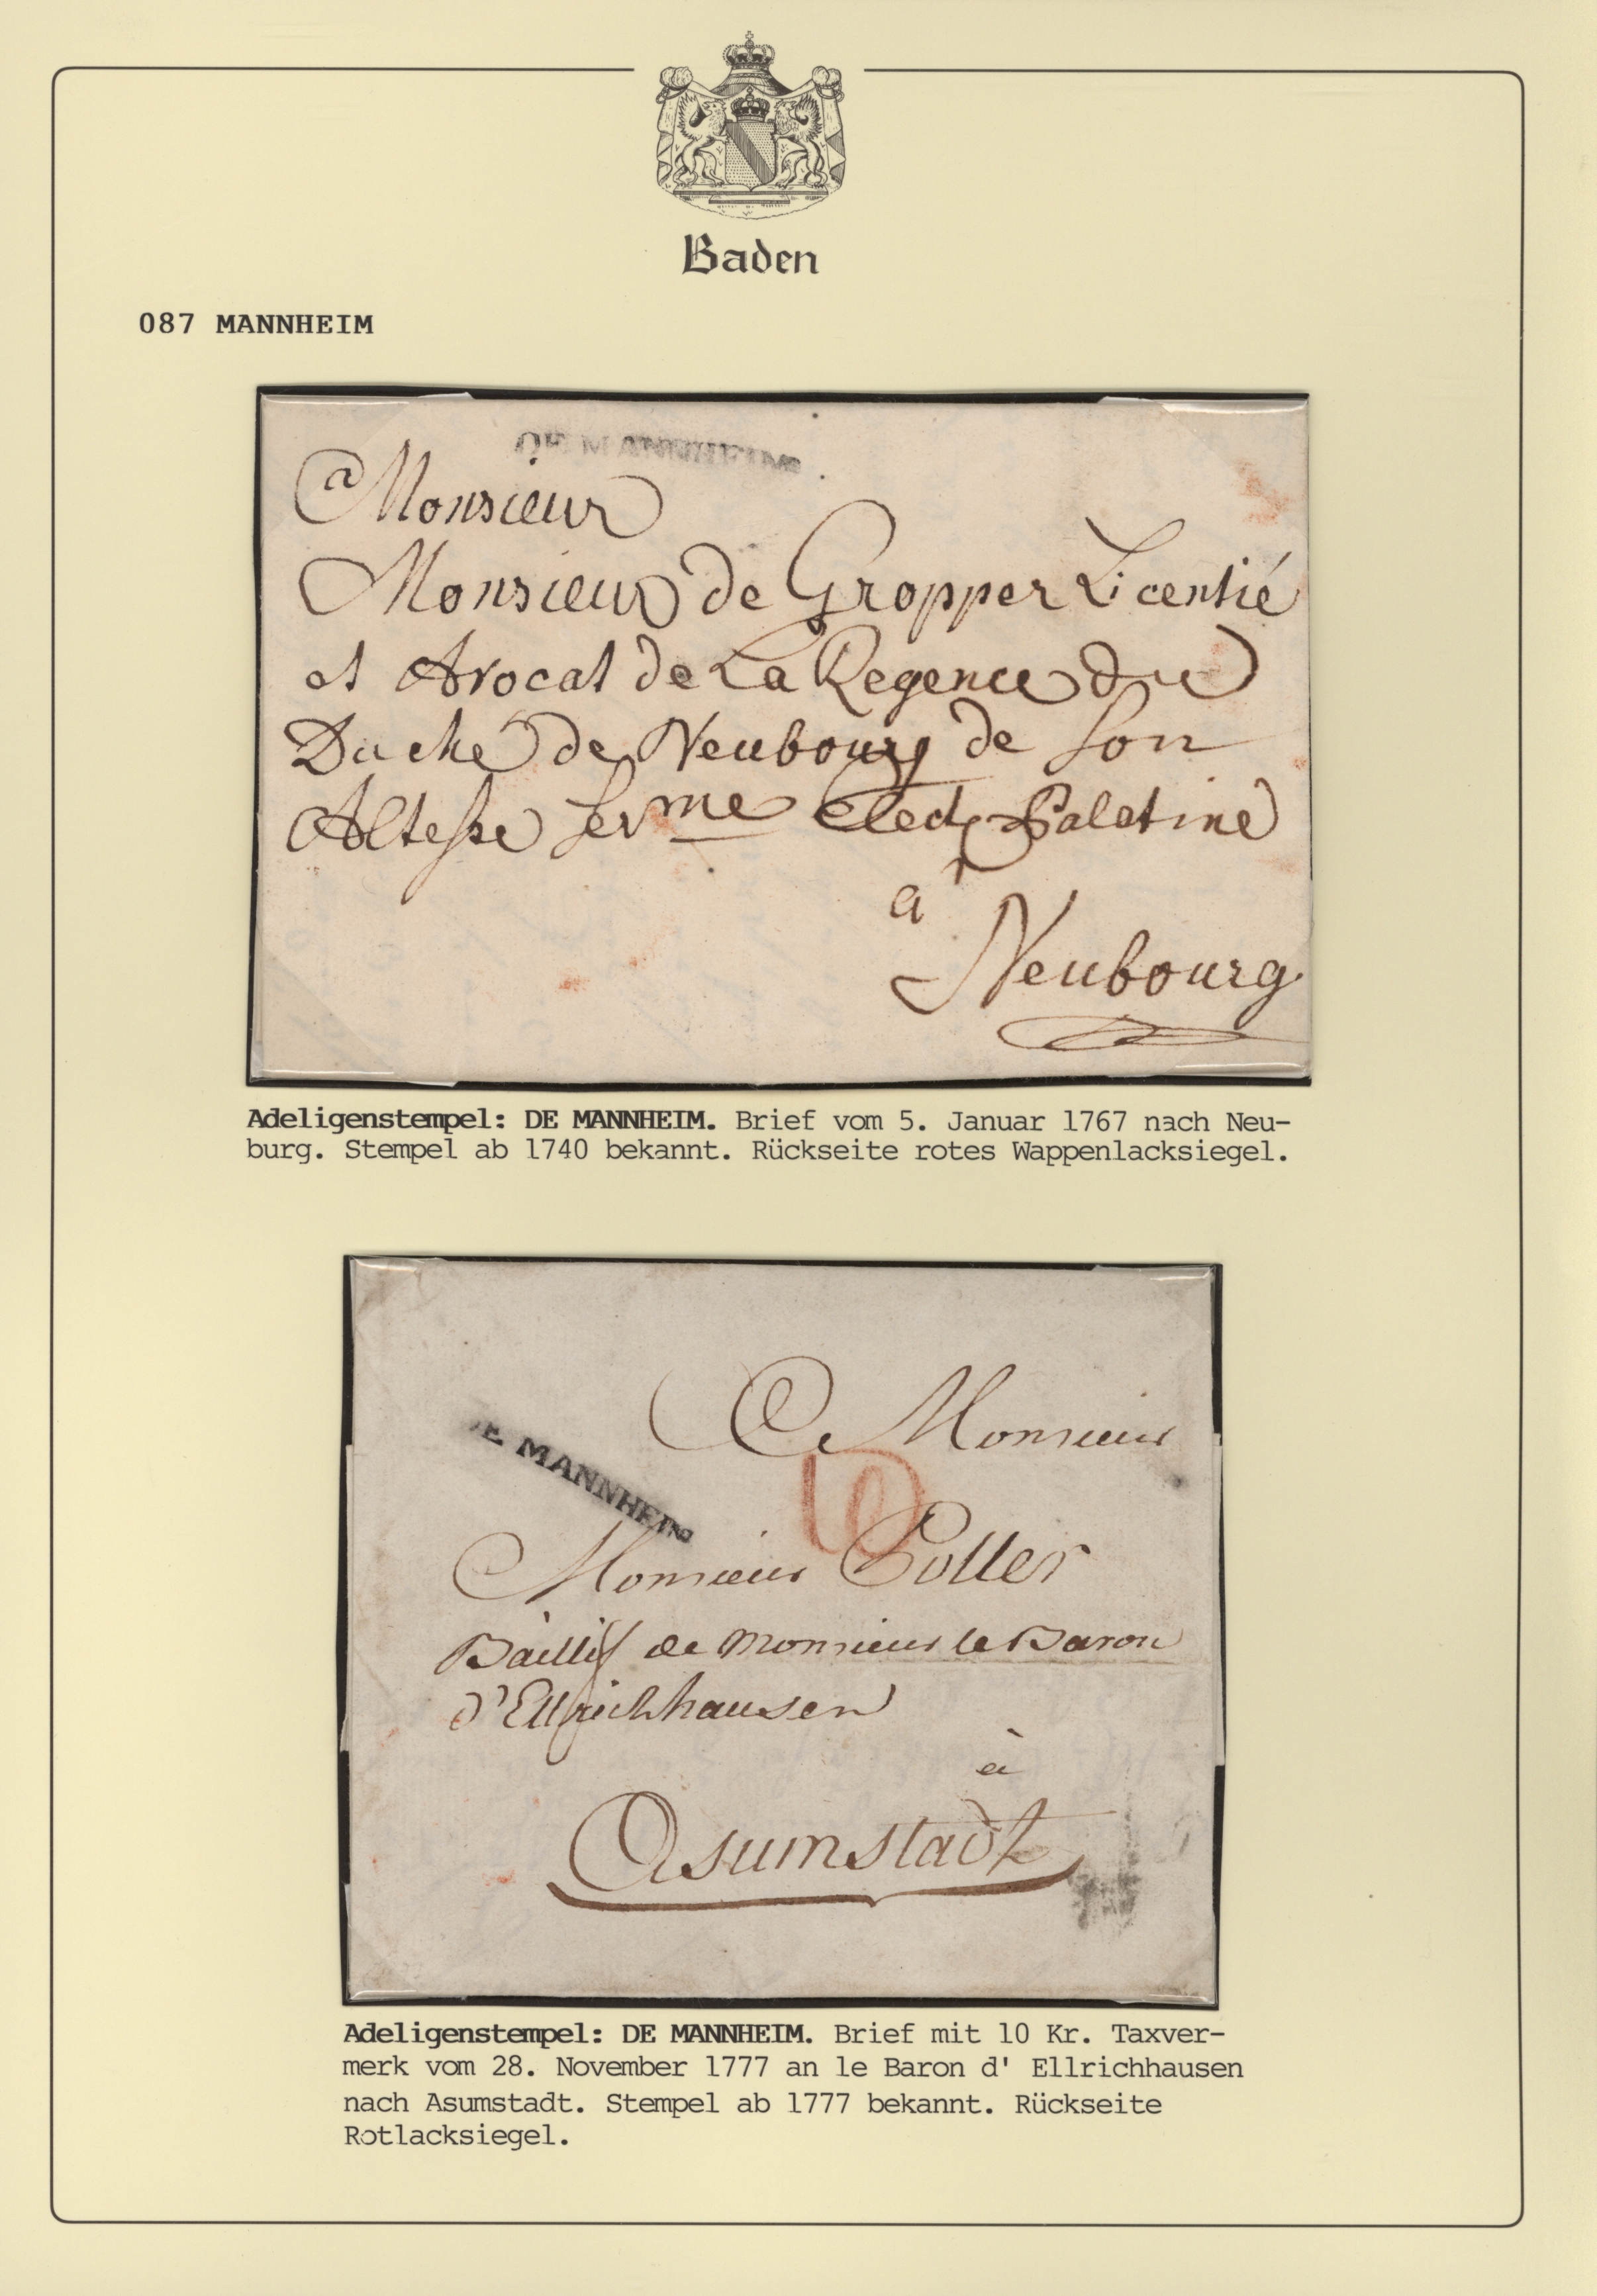 Baden
087 MANNHEIM
DE MANNHEIM
a Monsieur
Monsieur de Gropper Licentié
et Avocat de La Regence du
Duché de Neubourg de Son
Altesse Serme Elect Palatine
a
Neubourg
Adeligenstempel: DE MANNHEIM. Brief vom 5. Januar 1767 nach Neu-
burg. Stempel ab 1740 bekannt. Rückseite rotes Wappenlacksiegel.
A Monsieur
DE MANNHEIM
10
Monsieur Poller
Baillif de Monsieur le Baron
d'Ellrichhausen
à
Asumstadt
Adeligenstempel: DE MANNHEIM. Brief mit 10 Kr. Taxver-
merk vom 28. November 1777 an le Baron d' Ellrichhausen
nach Asumstadt. Stempel ab 1777 bekannt. Rückseite
Rotlacksiegel.